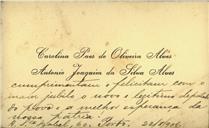 Carolina Paes de Oliveira Alves
Antonio Joaquim da Silva Alves
cumprimentam e felicitam com o
maior jubilo o novo e legitimo deputado
do povo e a melhor esperança da
nossa patria
Porto, 22/8/906